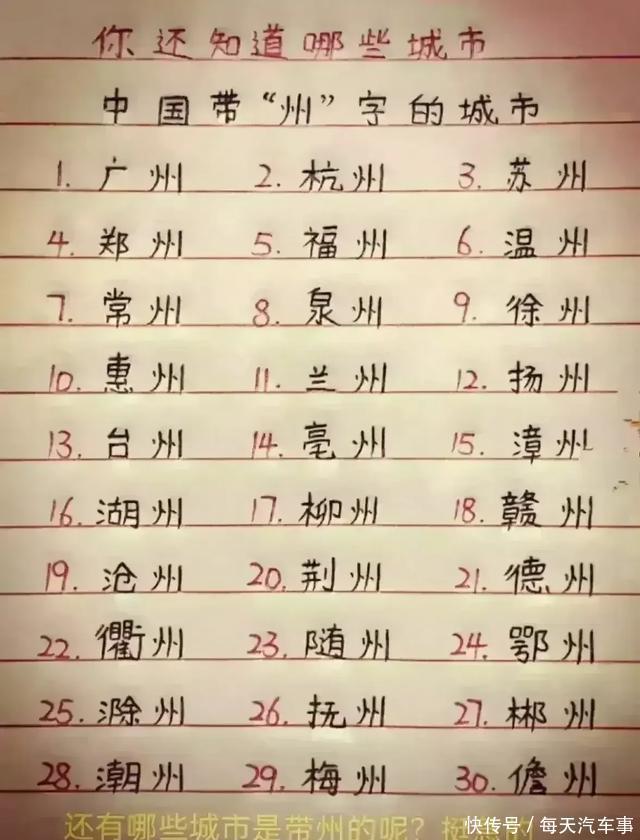 你还知道哪些城市
中国带“州”字的城市
1. 广州 2. 杭州 3. 苏州
4. 郑州 5. 福州 6. 温州
7. 常州 8. 泉州 9. 徐州
10. 惠州 11. 兰州 12. 扬州
13. 台州 14. 亳州 15. 漳州
16. 湖州 17. 柳州 18. 赣州
19. 沧州 20. 荆州 21. 德州
22. 衢州 23. 随州 24. 鄂州
25. 滁州 26. 抚州 27. 郴州
28. 潮州 29. 梅州 30. 儋州
还有哪些城市是带州的呢？挺
快传号/每天汽车事